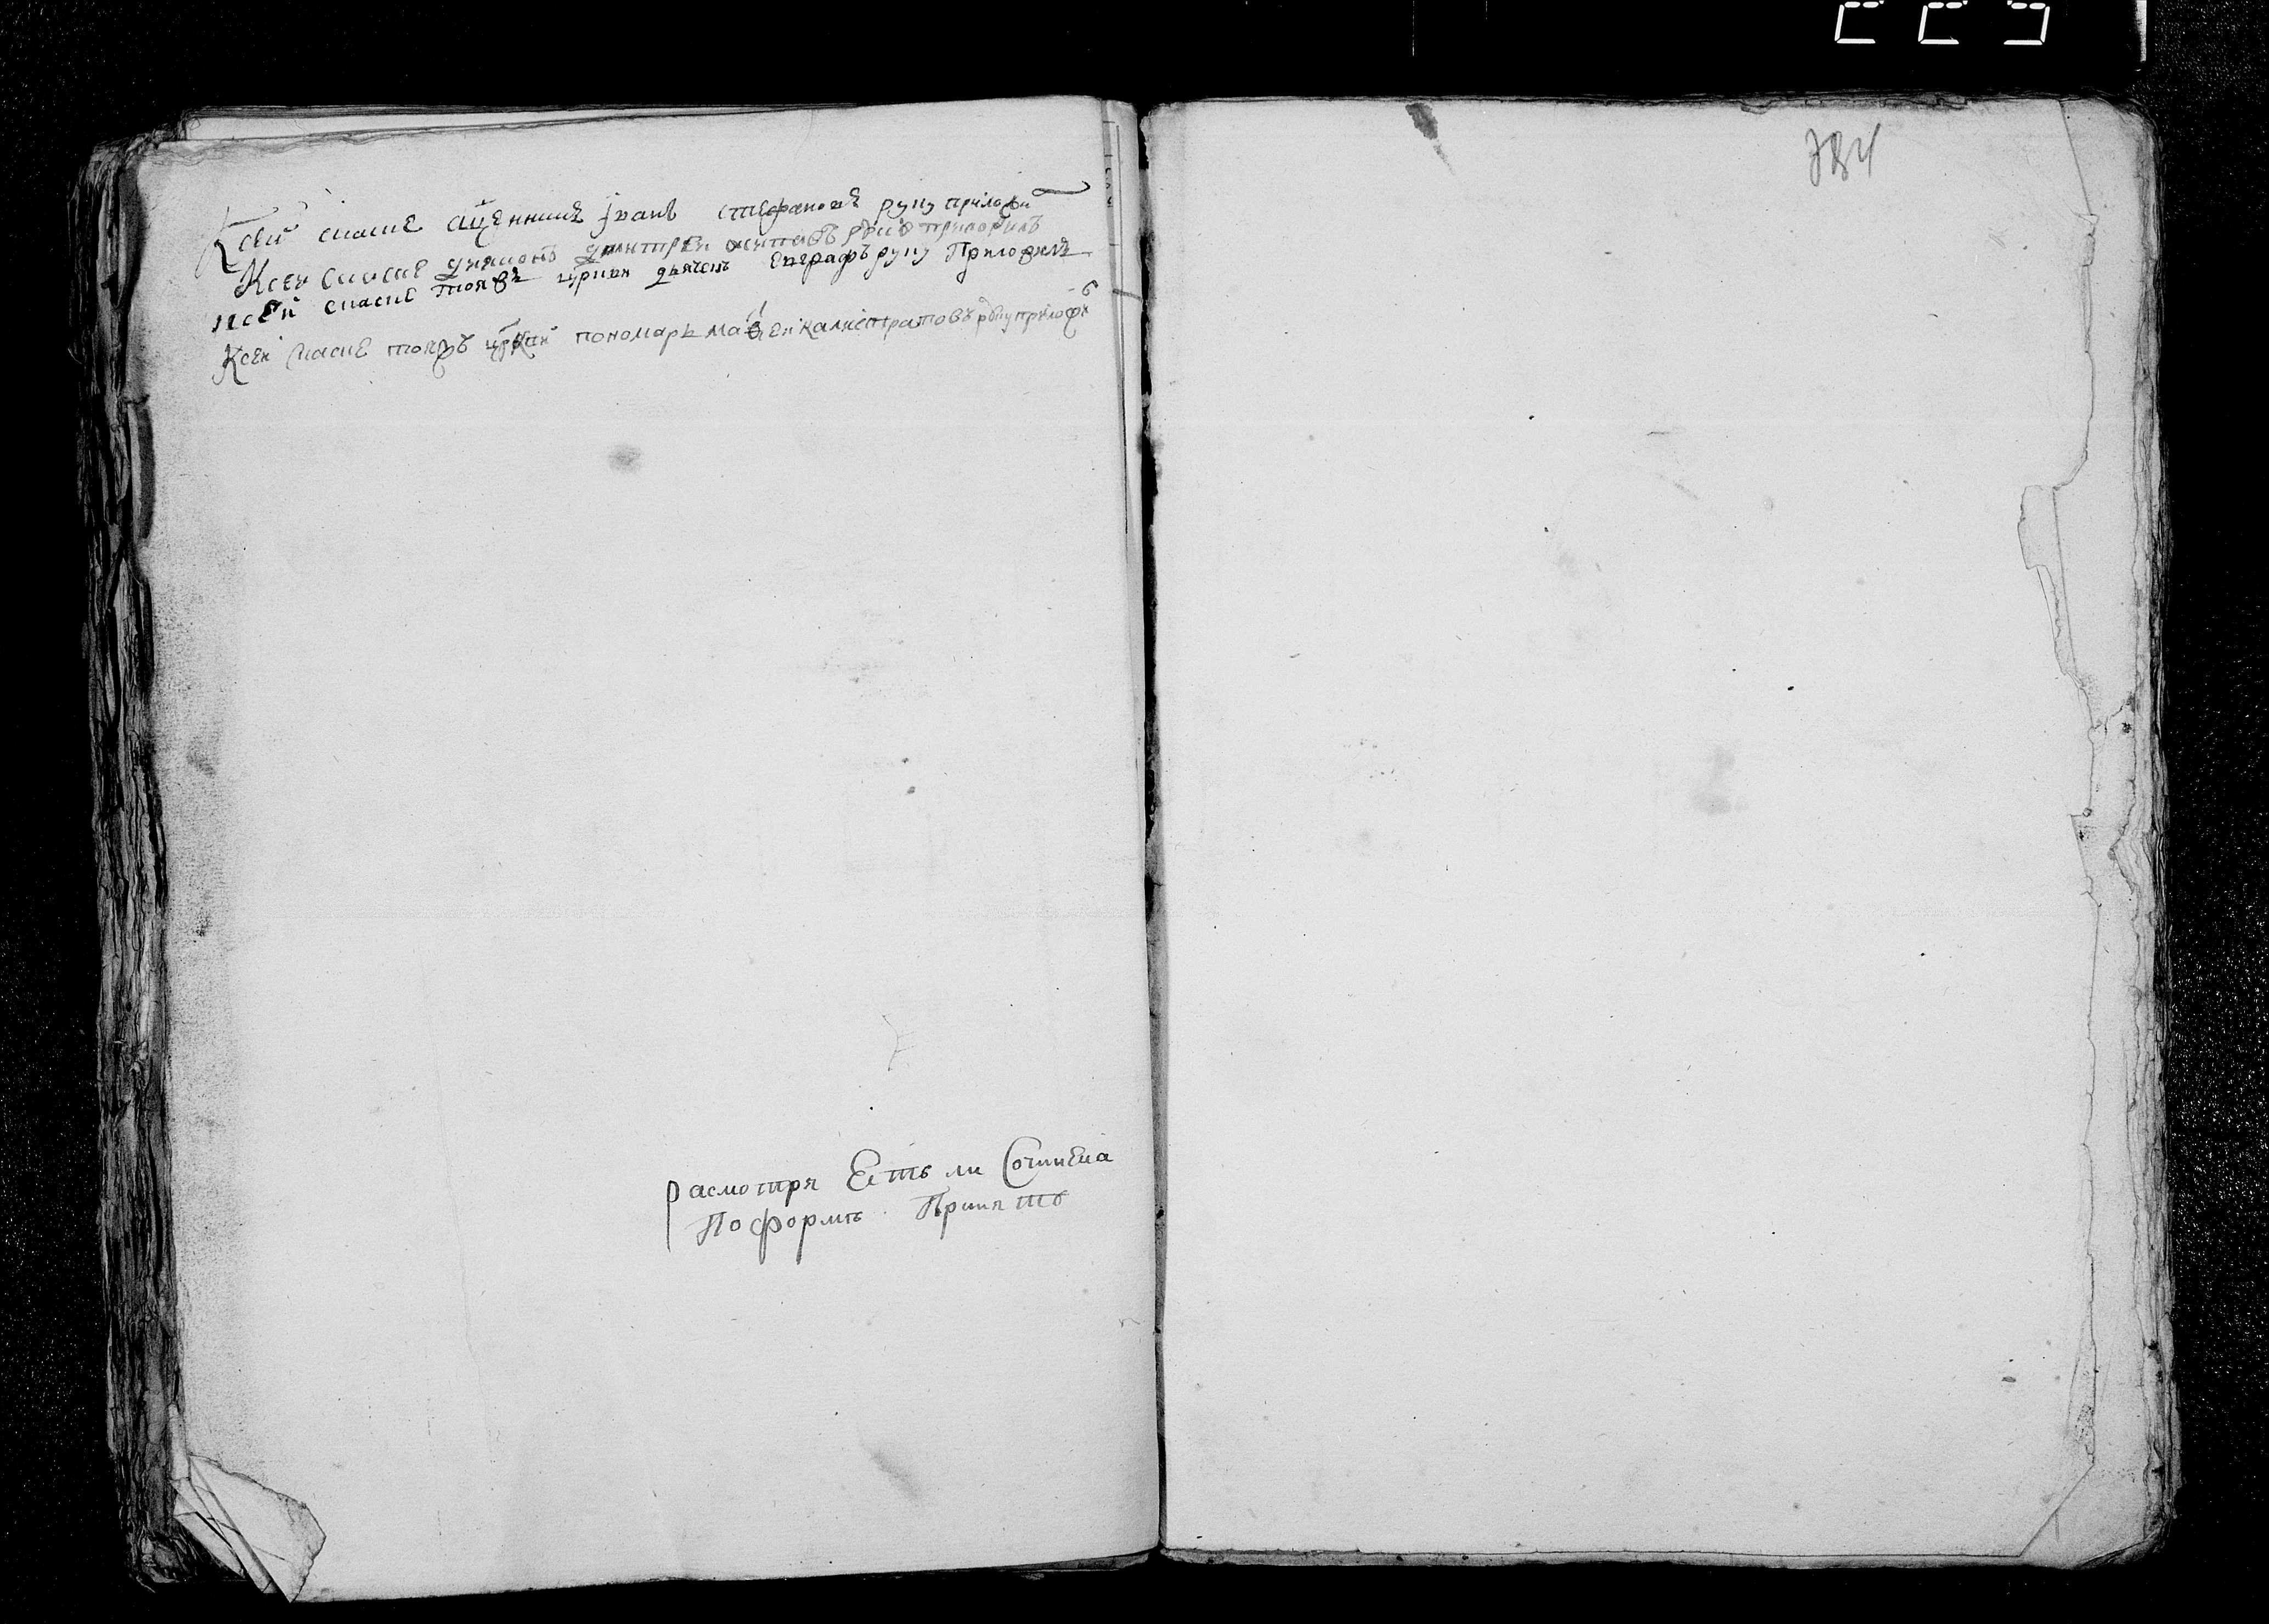 Ксей скаске сщенникъ јванъ стефановъ руку приложи
Ксеи скаске дьяконъ димитреи руку приложилъ
ксей скаске тояжъ цркви дьячекъ Евграфъ руку Приложилъ
Ксеи скаске тояжъ цркви пономарь матвеи калистратовъ руку приложи
расмотря Есть ли Сочинена
По формѣ Принять
384